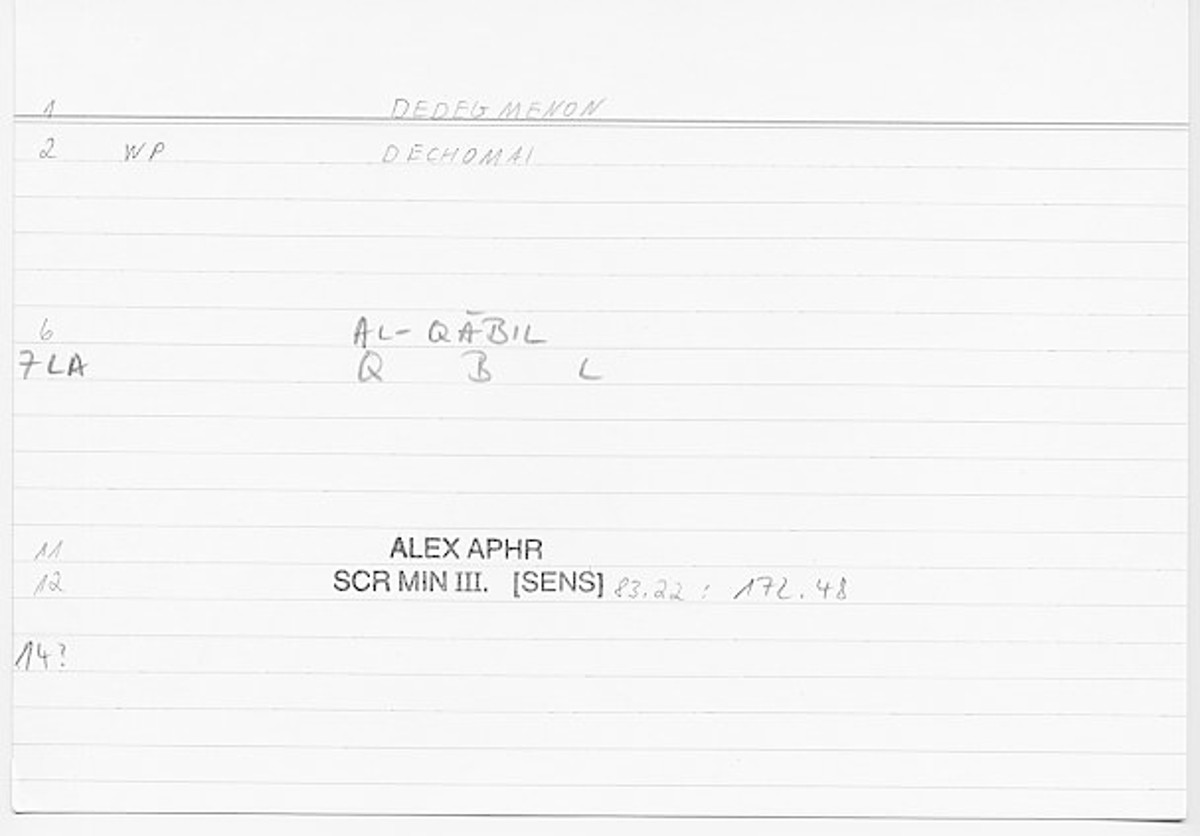 1 DEDEGMENON
2 WP DECHOMAI
6 AL-QĀBIL
7LA Q B L
11 ALEX APHR
12 SCR MIN III. [SENS] 83.22 : 172.48
14?